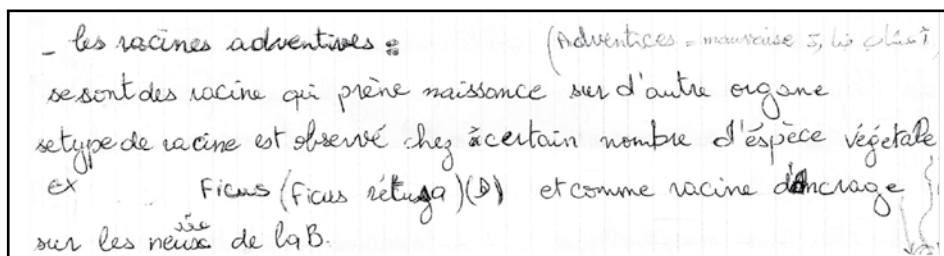 - les racines adventives : (Adventices = mauvaise
se sont des racine qui prène naissance sur d'autre organe
se type de racine est observé chez certain nombre d'éspèce végétale
ex Ficus (Ficus rétusa) (D) et comme racine d'ancrage
sur les de la B.